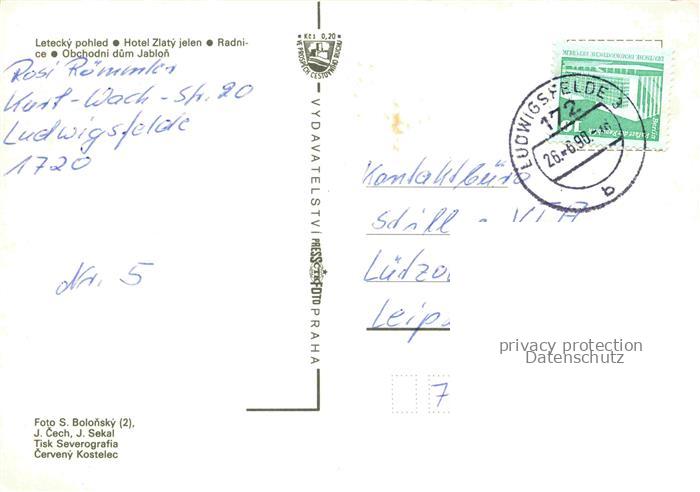 Letecký pohled ● Hotel Zlatý jelen ● Radni-
ce ● Obchodní dům Jabloň
Rosi Römmler
Kurt-Wach-Str. 20
Ludwigsfelde
1720
Nr. 5
Kčs 0,20
VE PROSPĚCH CESTOVNÍHO RUCHU
VYDAVATELSTVÍ PRESSFOTO PRAHA
ČTK
DEUTSCHE DEMOKRATISCHE REPUBLIK
Berlin
10
LUDWIGSFELDE
172
26.-6.90.
b
Kontaktbüro
Still - VTA
Lützo
Leip
7
privacy protection
Datenschutz
Foto S. Boloňský (2),
J. Čech, J. Sekal
Tisk Severografia
Červený Kostelec